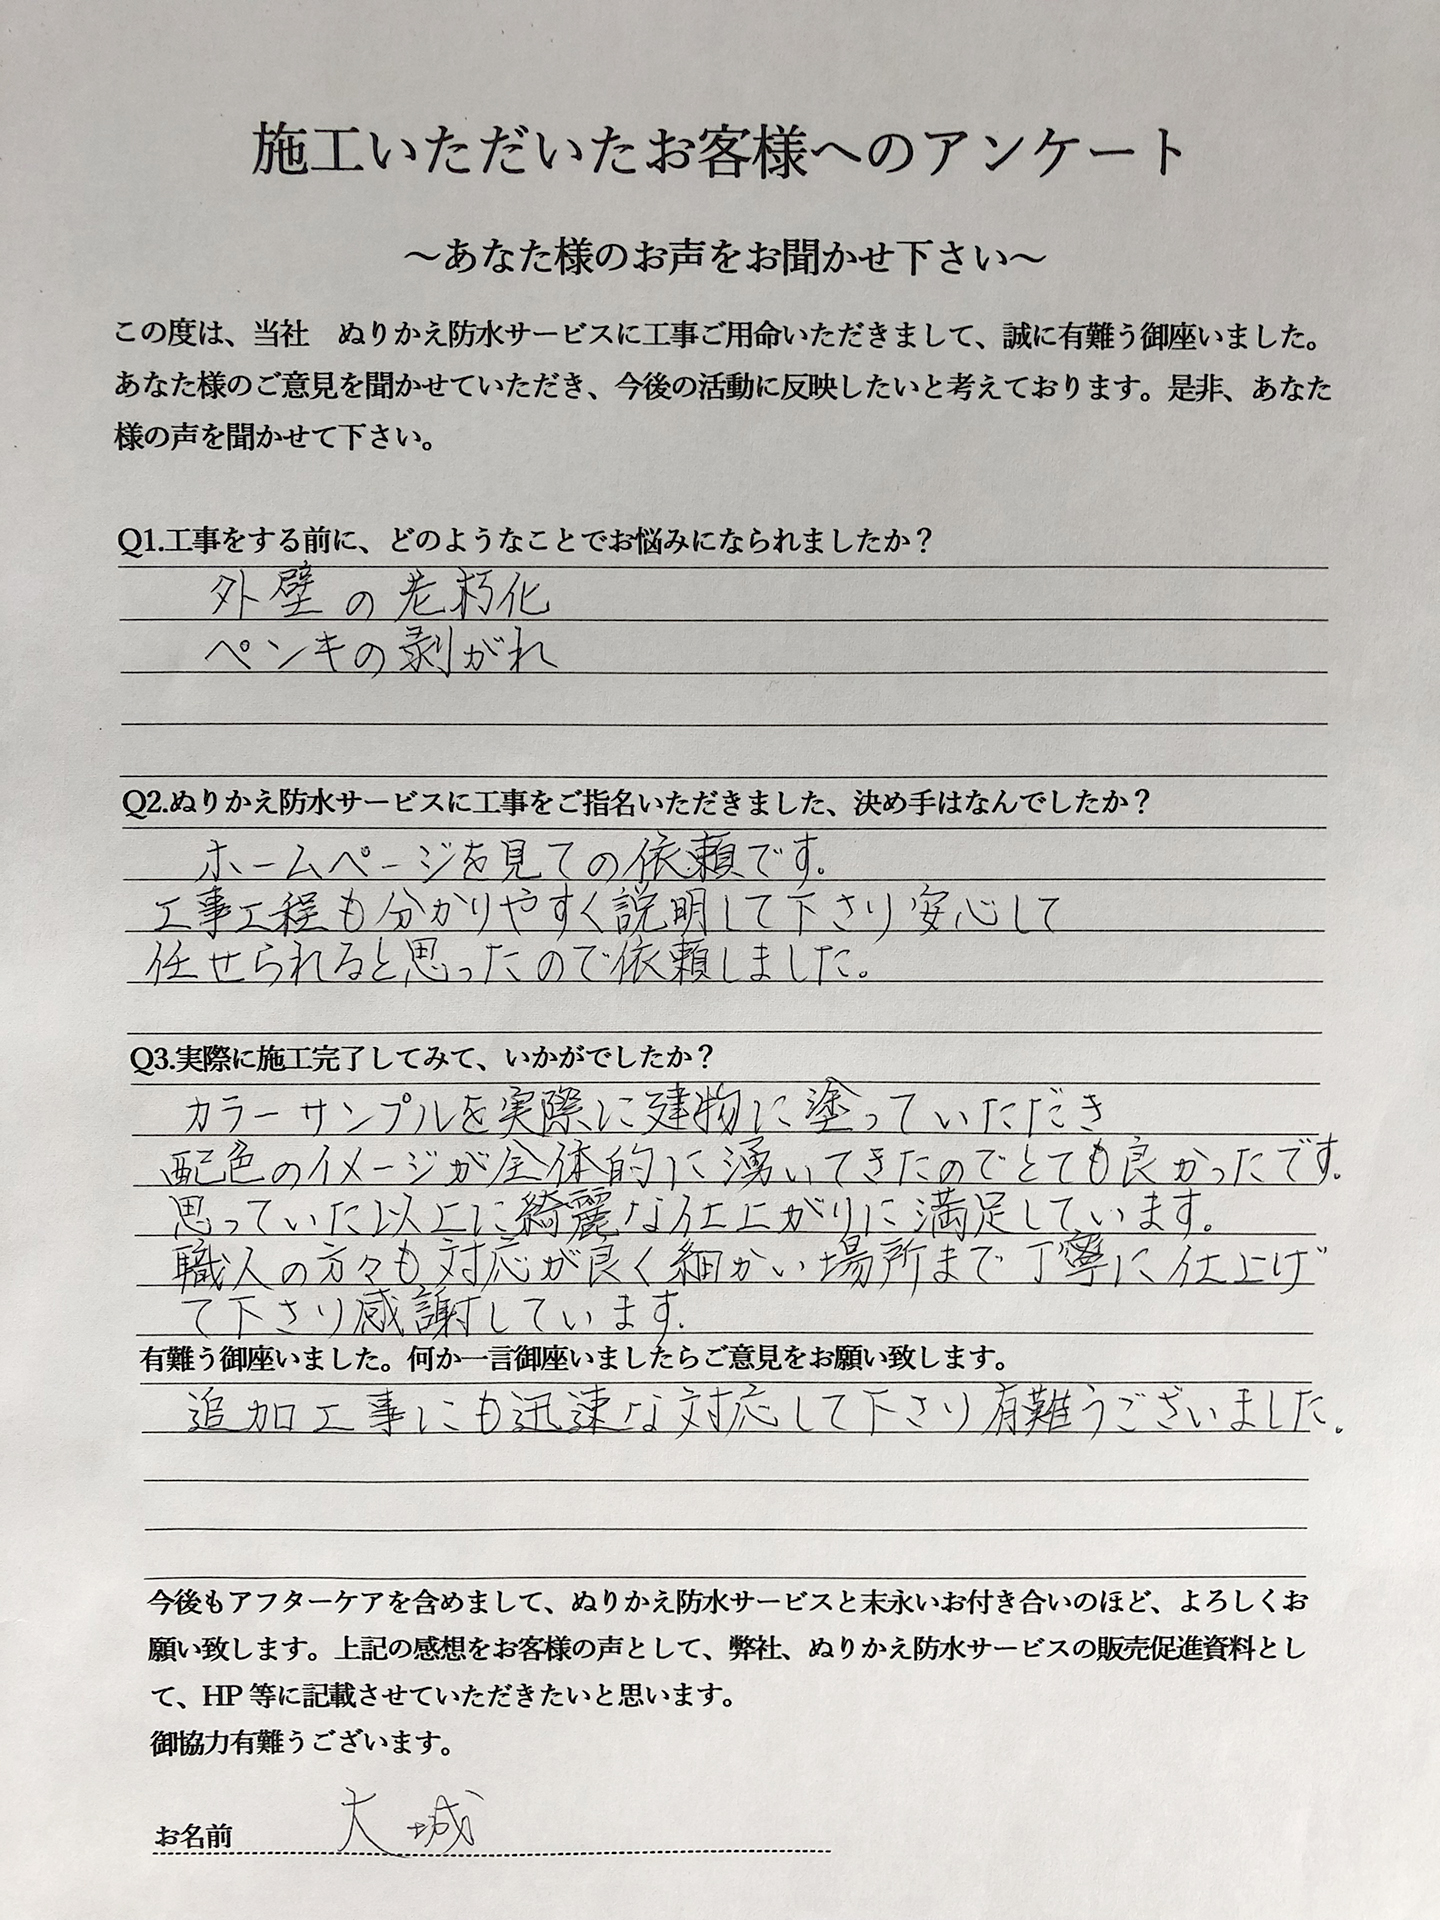 施工いただいたお客様へのアンケート
～あなた様のお声をお聞かせ下さい～
この度は、当社　ぬりかえ防水サービスに工事ご用命いただきまして、誠に有難う御座いました。
あなた様のご意見を聞かせていただき、今後の活動に反映したいと考えております。是非、あなた
様の声を聞かせて下さい。
Q1.工事をする前に、どのようなことでお悩みになられましたか？
外壁の老朽化
ペンキの剥がれ
Q2.ぬりかえ防水サービスに工事をご指名いただきました、決め手はなんでしたか？
ホームページを見ての依頼です。
工事工程も分かりやすく説明して下さり安心して
任せられると思ったので依頼しました。
Q3.実際に施工完了してみて、いかがでしたか？
カラーサンプルを実際に建物に塗っていただき
配色のイメージが全体的に湧いてきたのでとても良かったです。
思っていた以上に綺麗な仕上がりに満足しています。
職人の方々も対応が良く細かい場所まで丁寧に仕上げ
て下さり感謝しています。
有難う御座いました。何か一言御座いましたらご意見をお願い致します。
追加工事にも迅速な対応して下さり有難うございました。
今後もアフターケアを含めまして、ぬりかえ防水サービスと末永いお付き合いのほど、よろしくお
願い致します。上記の感想をお客様の声として、弊社、ぬりかえ防水サービスの販売促進資料とし
て、HP 等に記載させていただきたいと思います。
御協力有難うございます。
お名前 大城